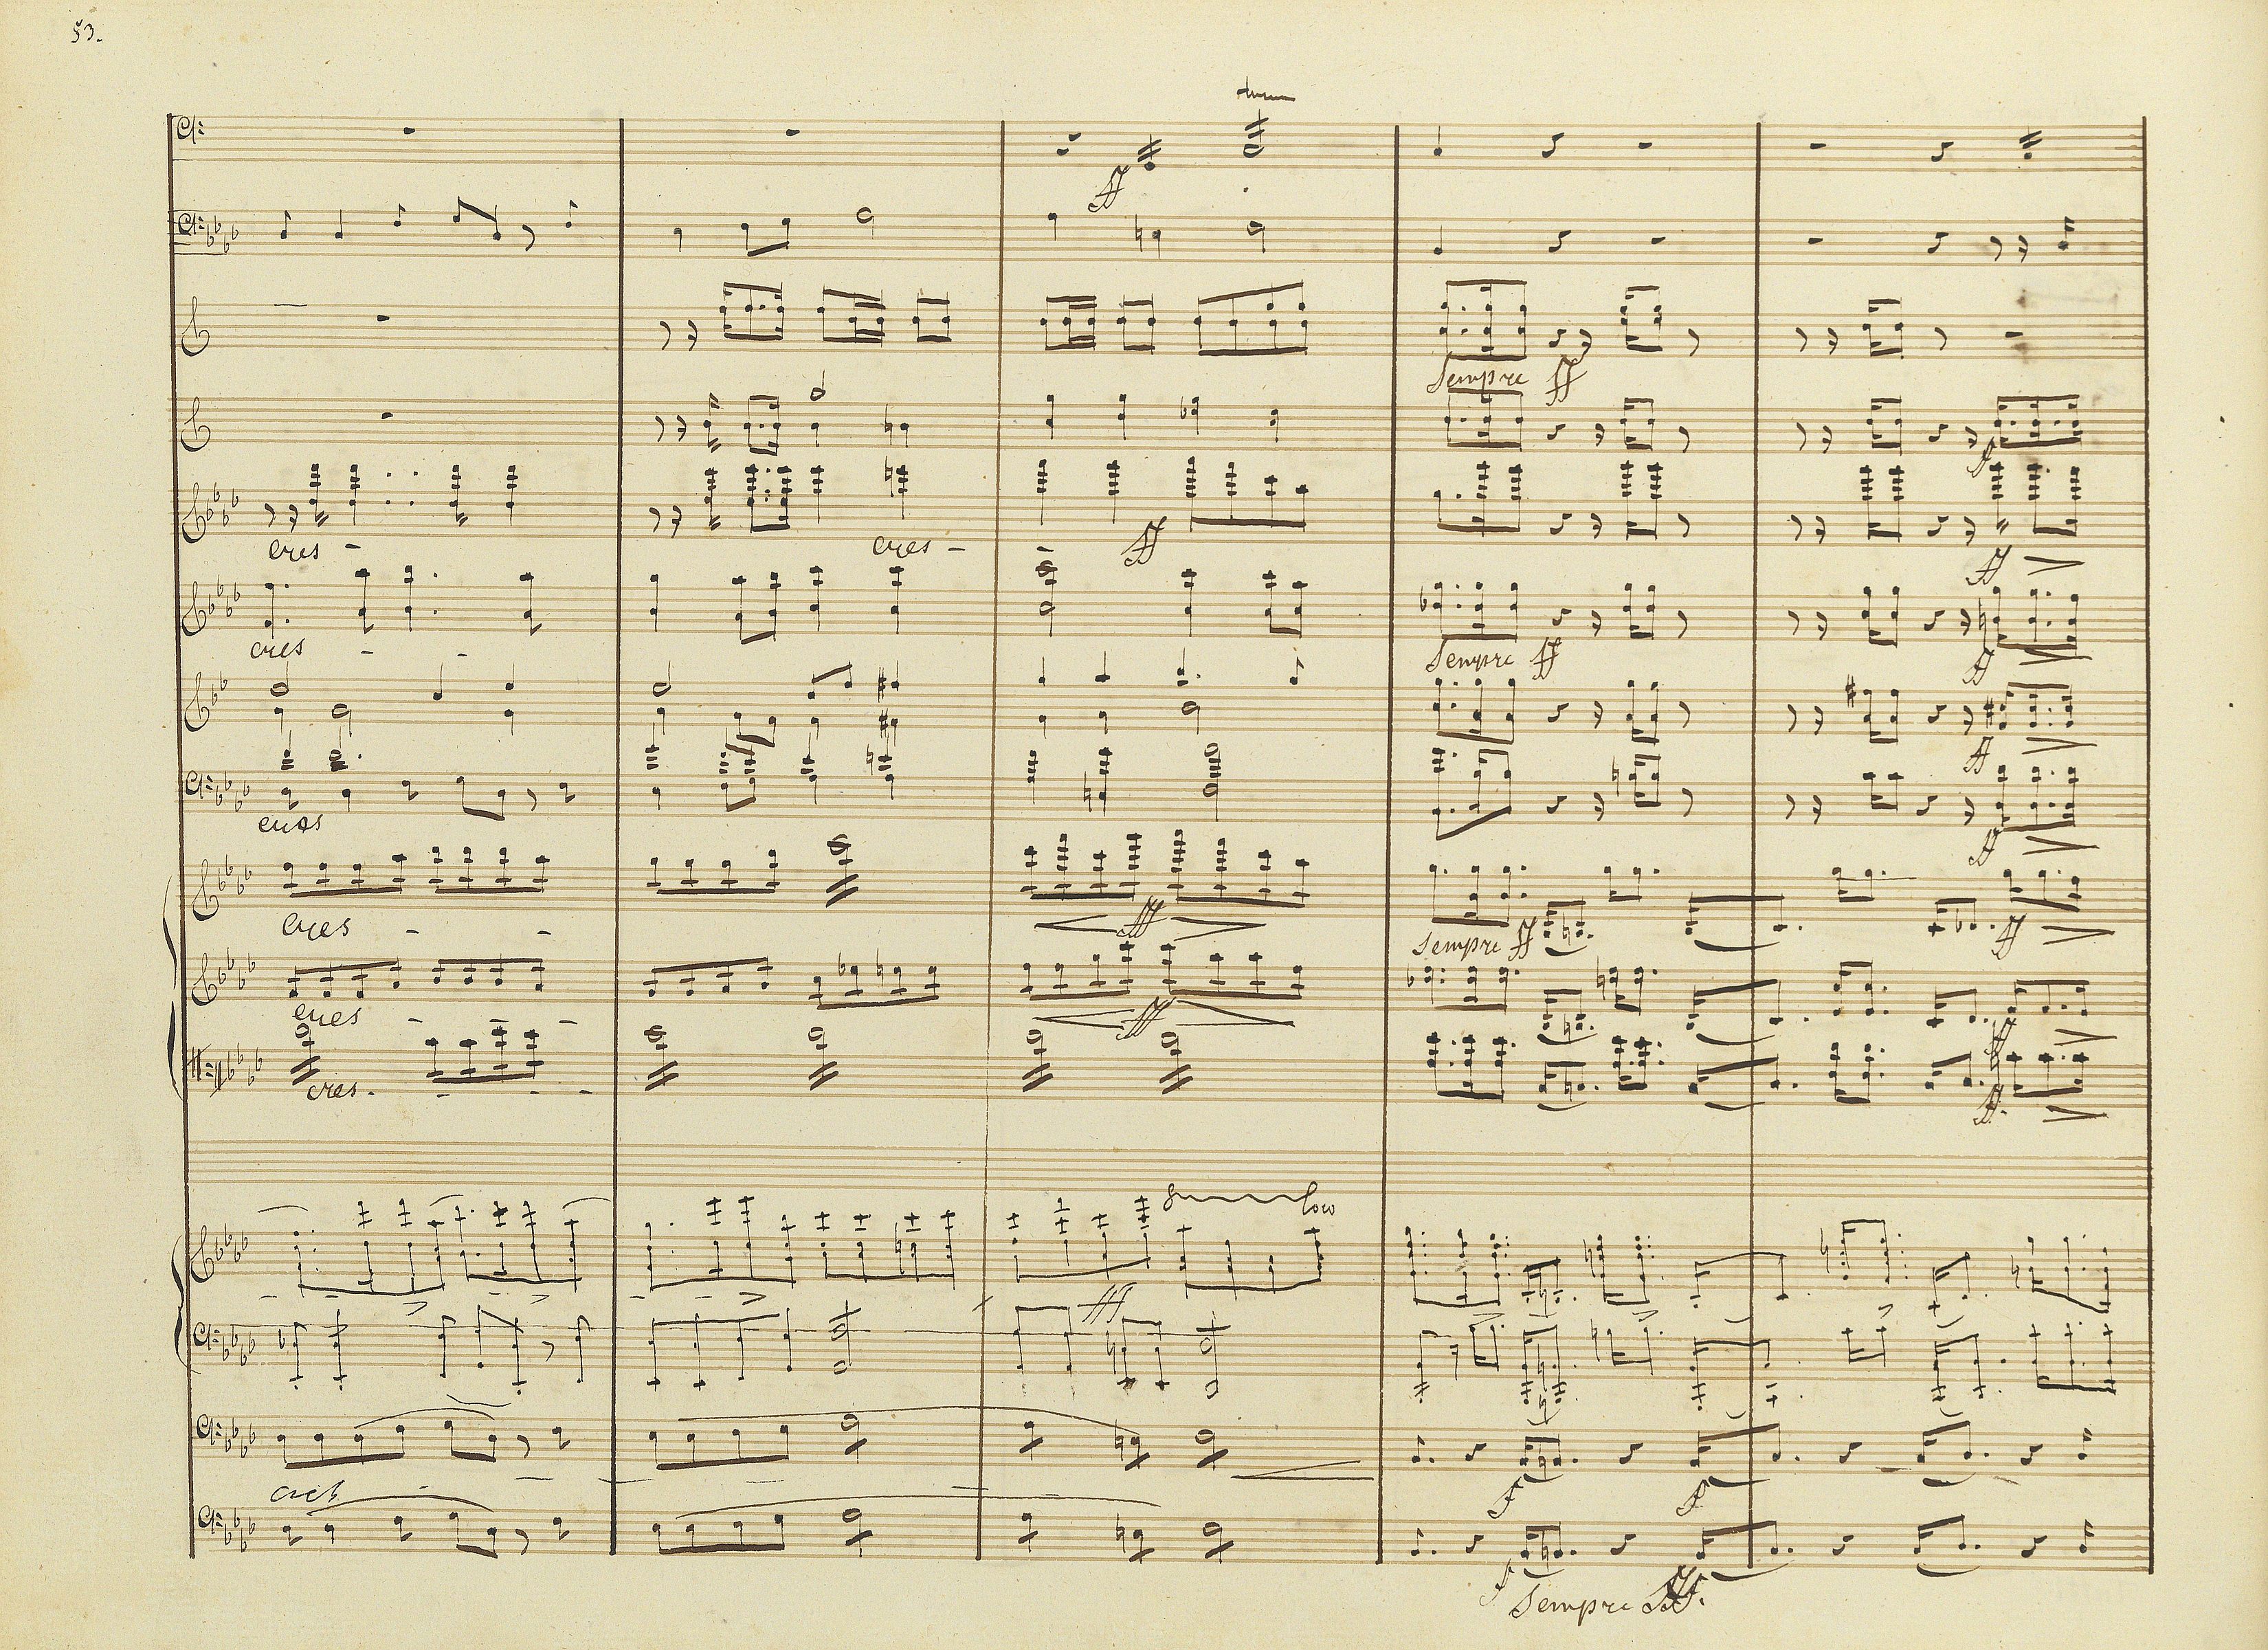 53.
ff
Sempre ff
f
cres - cres - - ff
ff
cres - -
Sempre ff
ff
ff
cres
ff
cres - - fff
Sempre ff
ff
cres - - - fff
ff
cres. - - - -
ff.
8 loco
fff
cres -
f f
f
Sempre fff.